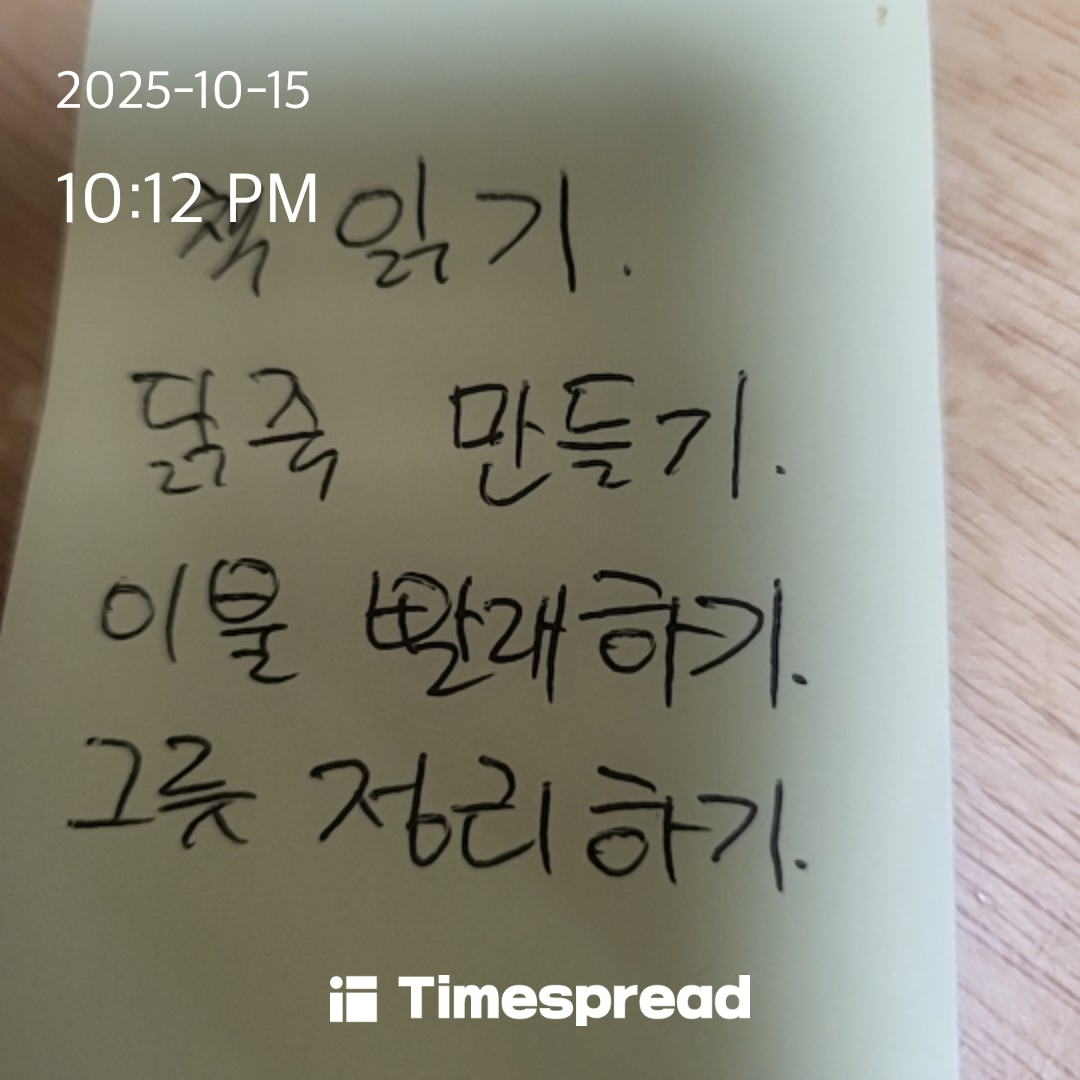 2025-10-15
10:12 PM
책 읽기.
닭죽 만들기.
이불 빨래하기.
그릇 정리하기.
Timespread